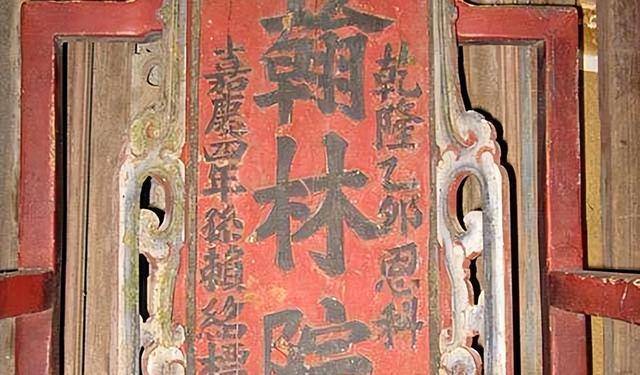 乾隆乙卯恩科
翰林院
嘉慶四年孫賴